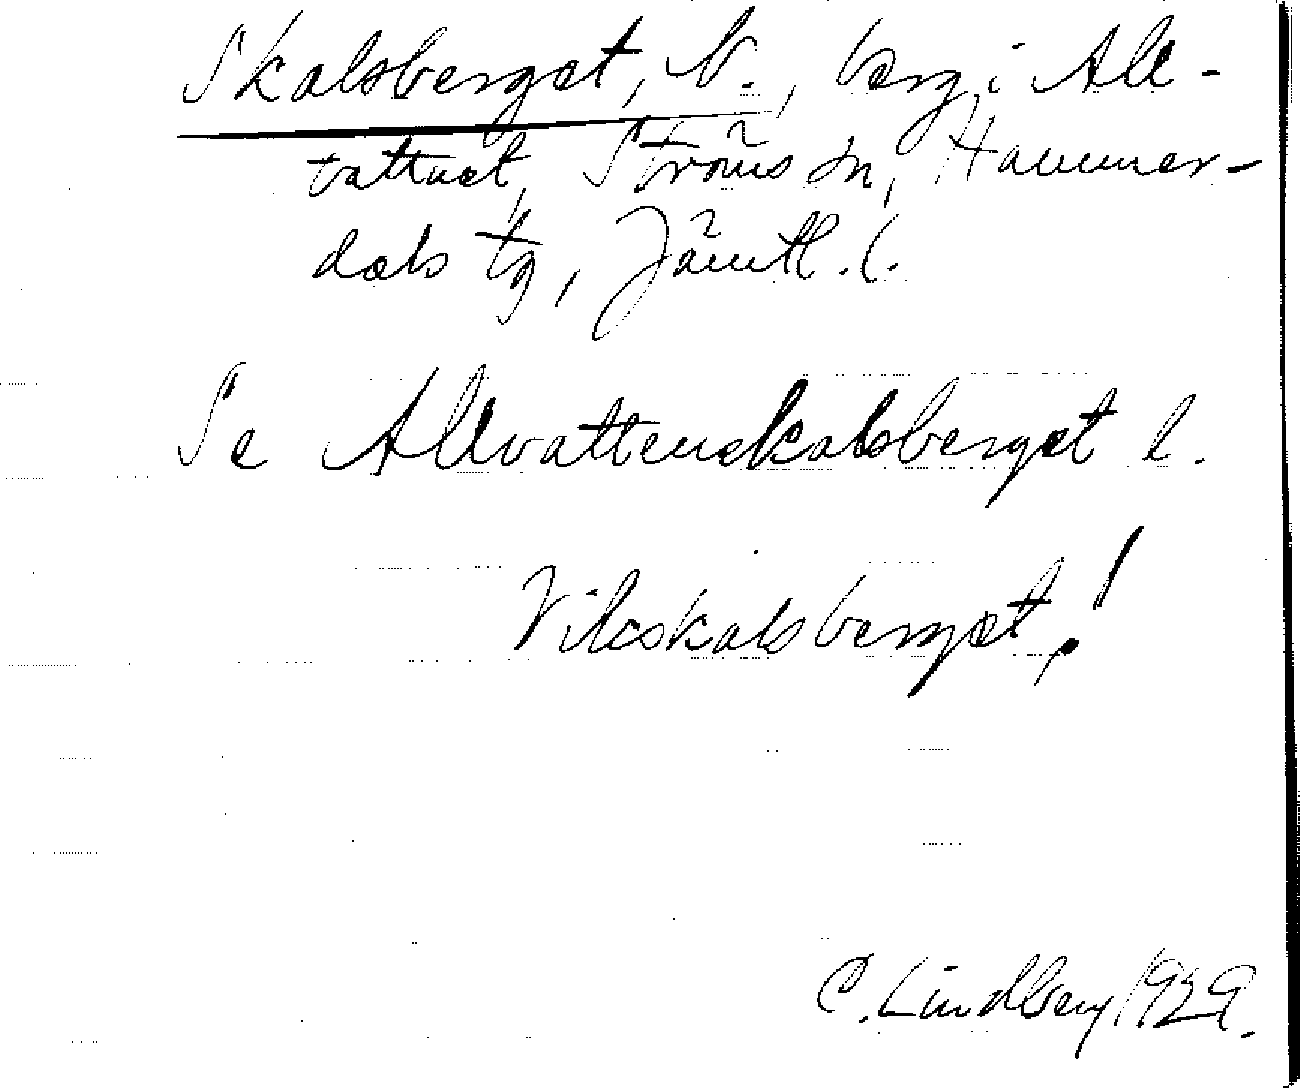 Skalsberget, V., berg i All-
vattnet, Ströms sn, Hammer-
dals tg, Jämtl. l.
Se Allvattenskalsberget l.
Vikskalsberget,!
C. Lindberg 1929.